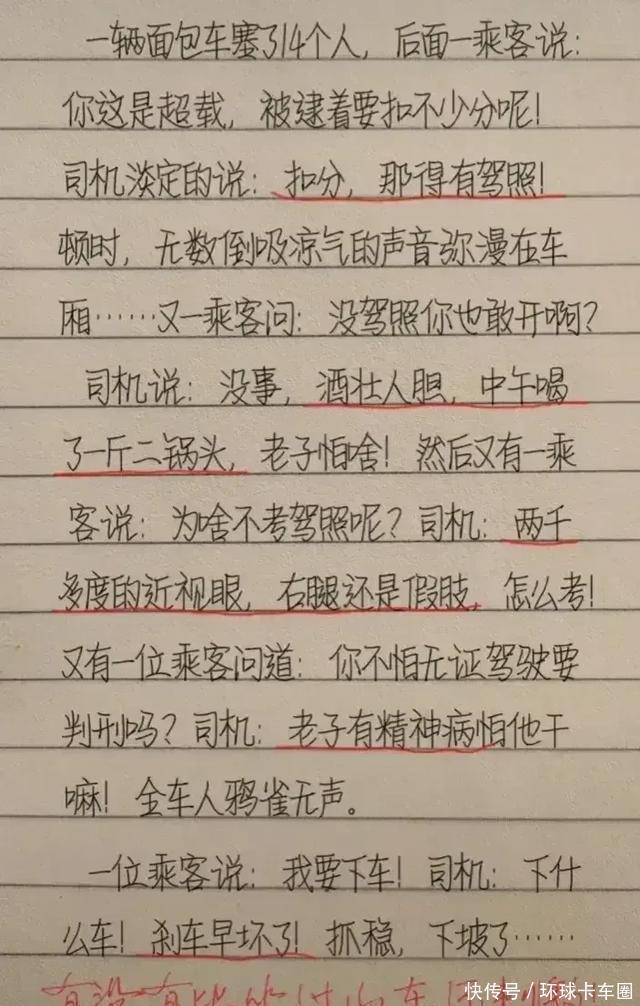 一辆面包车塞了14个人，后面一乘客说：
你这是超载，被逮着要扣不少分呢！
司机淡定的说：扣分，那得有驾照！
顿时，无数倒吸凉气的声音弥漫在车
厢……又一乘客问：没驾照你也敢开啊？
司机说：没事，酒壮人胆，中午喝
了一斤二锅头，老子怕啥！然后又有一乘
客说：为啥不考驾照呢？司机：两千
多度的近视眼，右腿还是假肢，怎么考！
又有一位乘客问道：你不怕无证驾驶要
判刑吗？司机：老子有精神病怕他干
嘛！全车人鸦雀无声。
一位乘客说：我要下车！司机：下什
么车！刹车早坏了！抓稳，下坡了……
有没有比
快传号／环球卡车圈